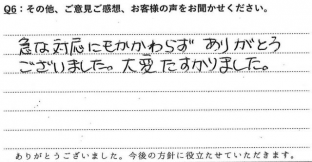 Q6：その他、ご意見ご感想、お客様の声をお聞かせください。
急な対応にもかかわらず ありがとう
ございました。大変たすかりました。
ありがとうございました。今後の方針に役立たせていただきます。